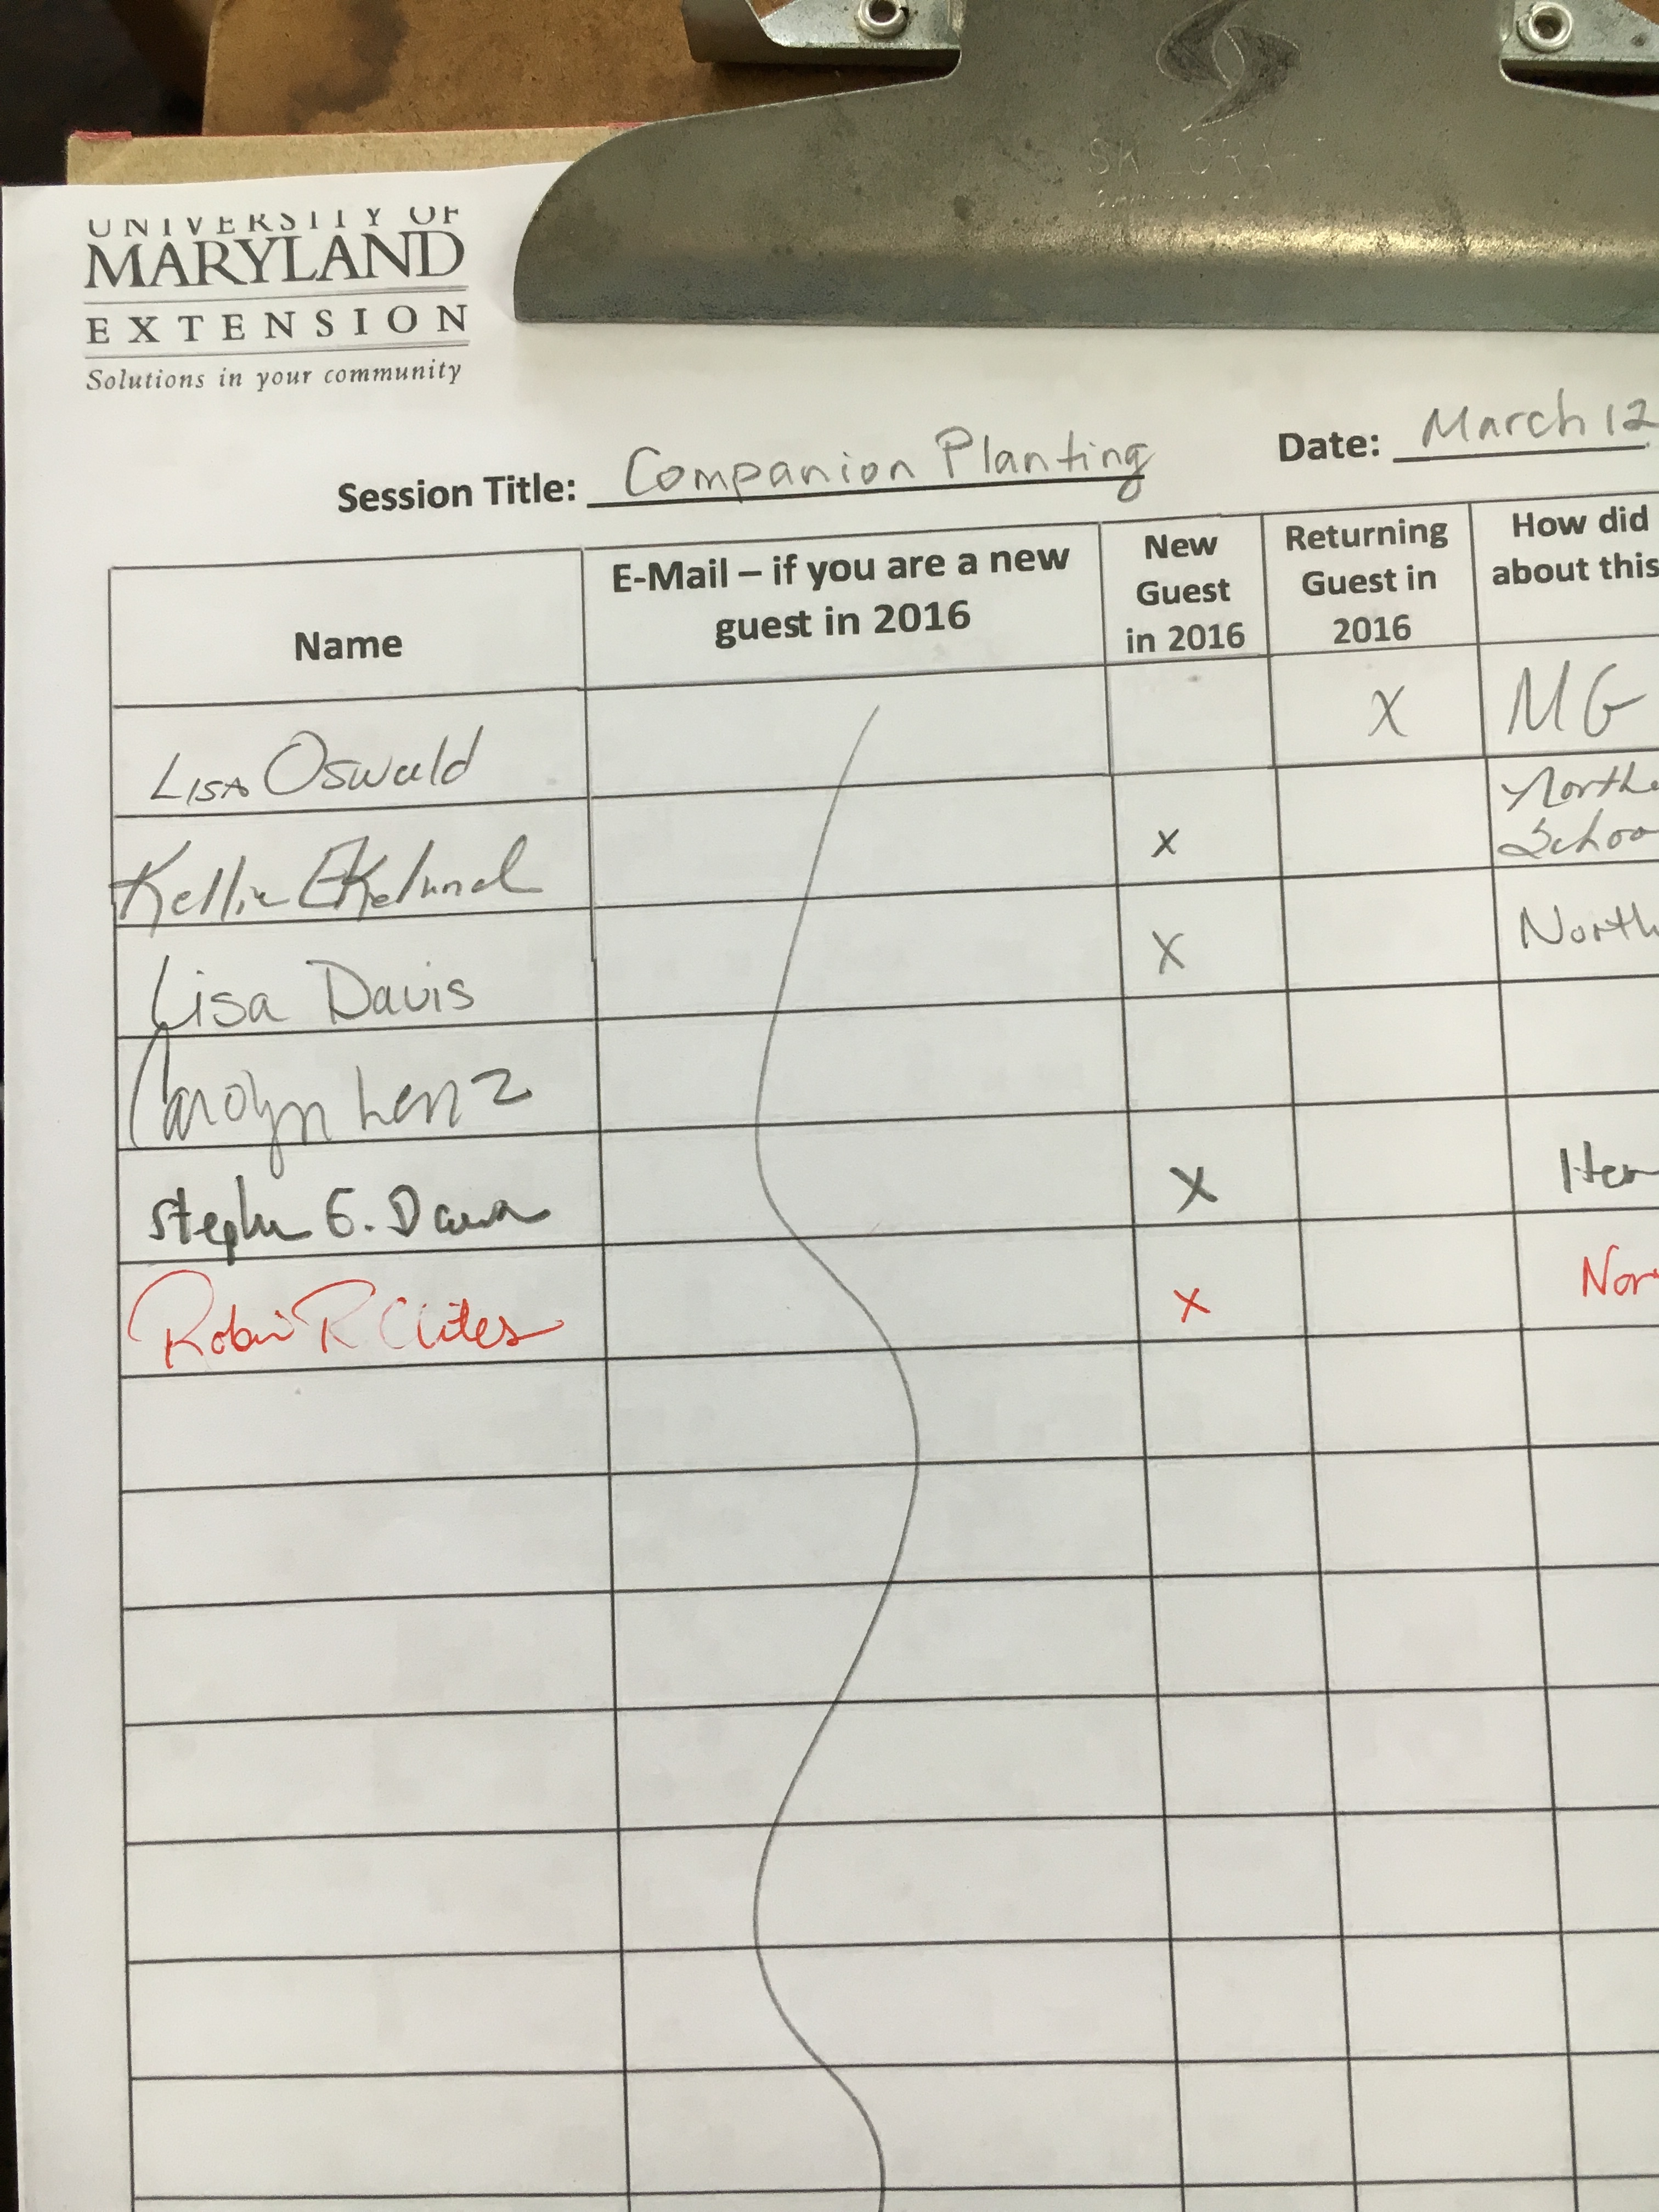 UNIVERSITY OF
MARYLAND
EXTENSION
Solutions in your community
Session Title: Companion Planting Date: March 12
Name
E-Mail – if you are a new
guest in 2016
New
Guest
in 2016
Returning
Guest in
2016
How did
about this
Lisa Oswald X MG
Kellie Ekelund X Northe
Schoo
Lisa Davis X North
Carolyn Lenz
Stephen G. X Her
Robin R Clites X Nor